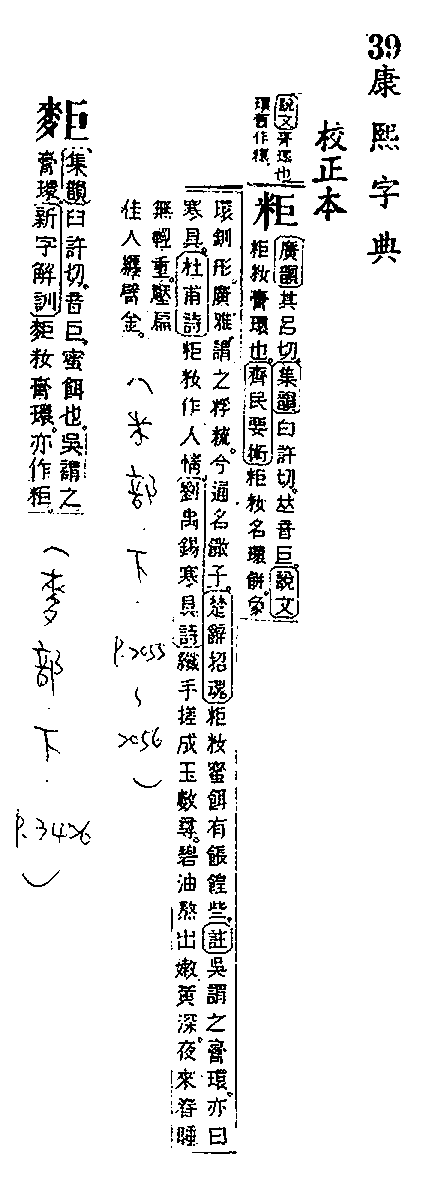 39康熙字典
校正本
說文膏環也
環舊作𥹝
粔
廣韻其呂切。集韻臼許切。𡘋音巨。說文
粔籹膏環也。齊民要術粔籹名環餅象
環釧形。廣雅謂之粰𥹷。今通名䭔子。楚辭招魂粔籹蜜餌有餦餭些。註吳謂之膏環。亦曰
寒具。杜甫詩粔籹作人情。劉禹錫寒具詩纖手搓成玉數尋。碧油熬出嫩黃深。夜來春睡
無輕重。壓扁
佳人纏臂金。
(米部·下·
P.2055
~
2056)
䵕
集韻臼許切。音巨。蜜餌也。吳謂之
膏環。新字解訓䵕籹膏環。亦作粔。
(麥部·下·
P.3426)